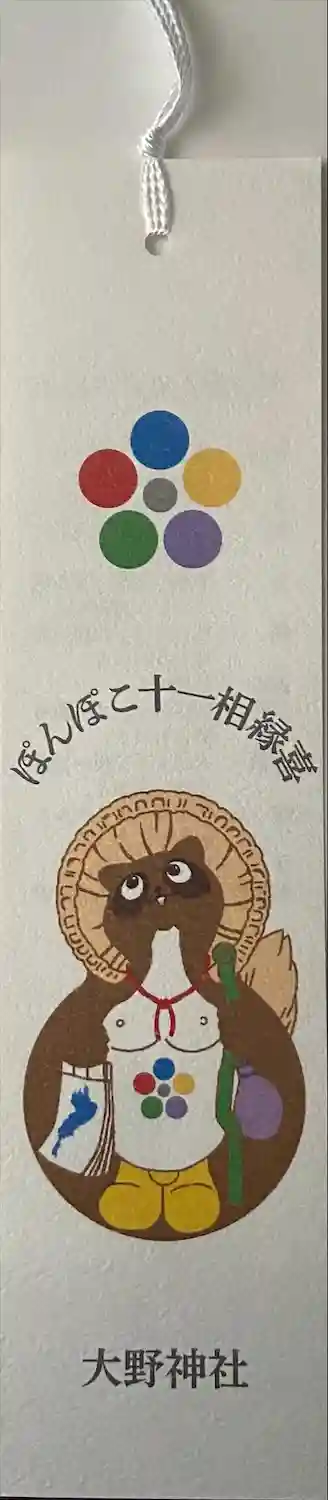 ぽんぽこ十一相縁喜
大野神社